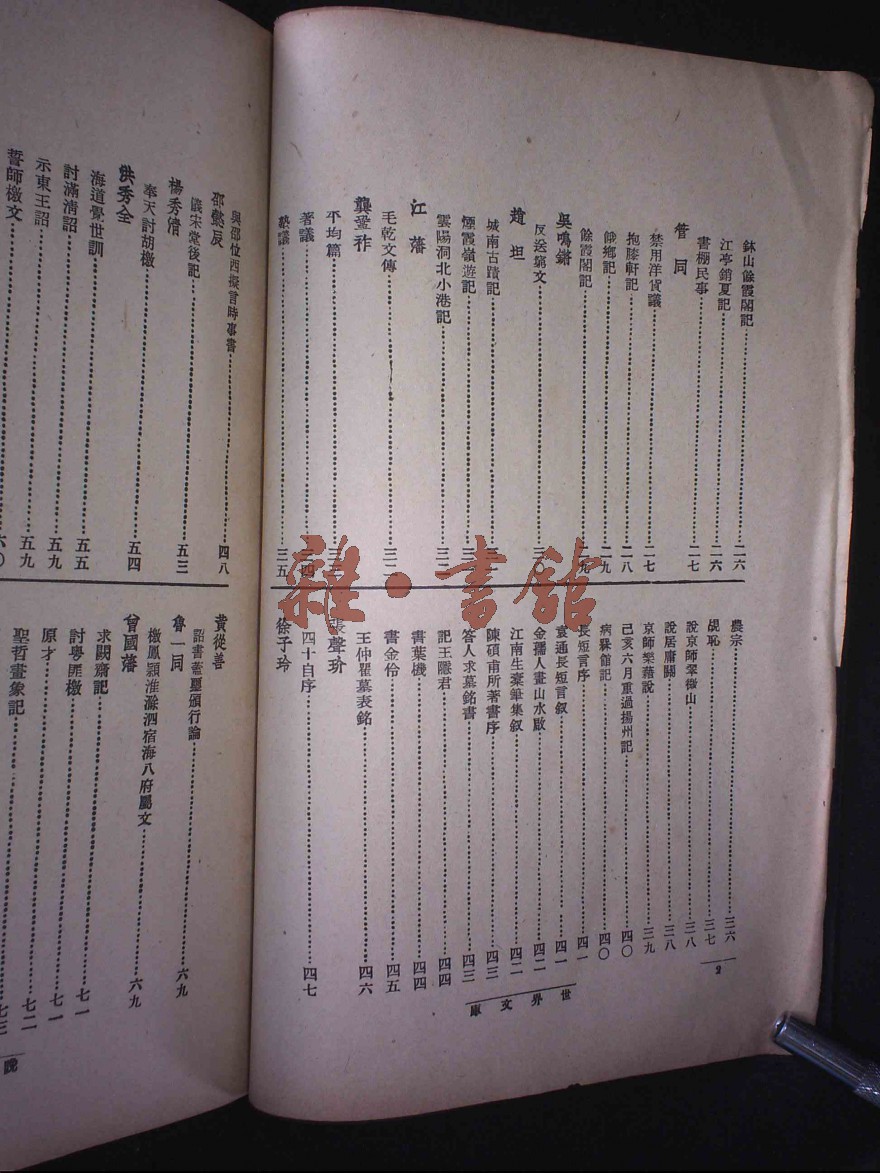 鉢山餘霞閣記……二六
江亭銷夏記……二六
書棚民事……二七
管同
禁用洋貨議……二七
抱膝軒記……二八
餓鄉記……二九
餘霞閣記……九
吳鳴鏘
反送窮文……三〇
趙坦
城南古蹟記……三
煙霞嶺遊記……三
雲陽洞北小港記……三二
江藩
毛乾文傳……三二
龔鞏祚
平均篇……三
著議……四
塾議……三五
農宗……三六
覘恥……三七
說京師翠微山……三八
說居庸關……三八
京師樂藉說……三九
己亥六月重過揚州記……四〇
病槑館記……四〇
長短言序……四一
袁通長短言叙……四一
金孺人畫山水啟……四二
江南生橐筆集叙……四二
陳碩甫所著書序……四三
答人求墓銘書……四三
記王隱君……四四
書葉機……四四
書金伶……四五
王仲瞿墓表銘……四六
張聲玠
四十自序……四七
徐子玲
2
世界文庫
與邵位西擬言時事書……四八
邵懿辰
儀宋堂後記……五三
楊秀清
奉天討胡檄……五四
洪秀全
海道覺世訓……五五
討滿清詔……五九
示東王詔……五九
誓師檄文……六〇
黃從善
詔書蓋璽頒行論……六九
魯一同
檄鳳潁淮滁泗宿海八府屬文……六九
曾國藩
求闕齋記……七一
討粵匪檄……七一
原才……七二
聖哲畫象記……七三
晚
雜·書館